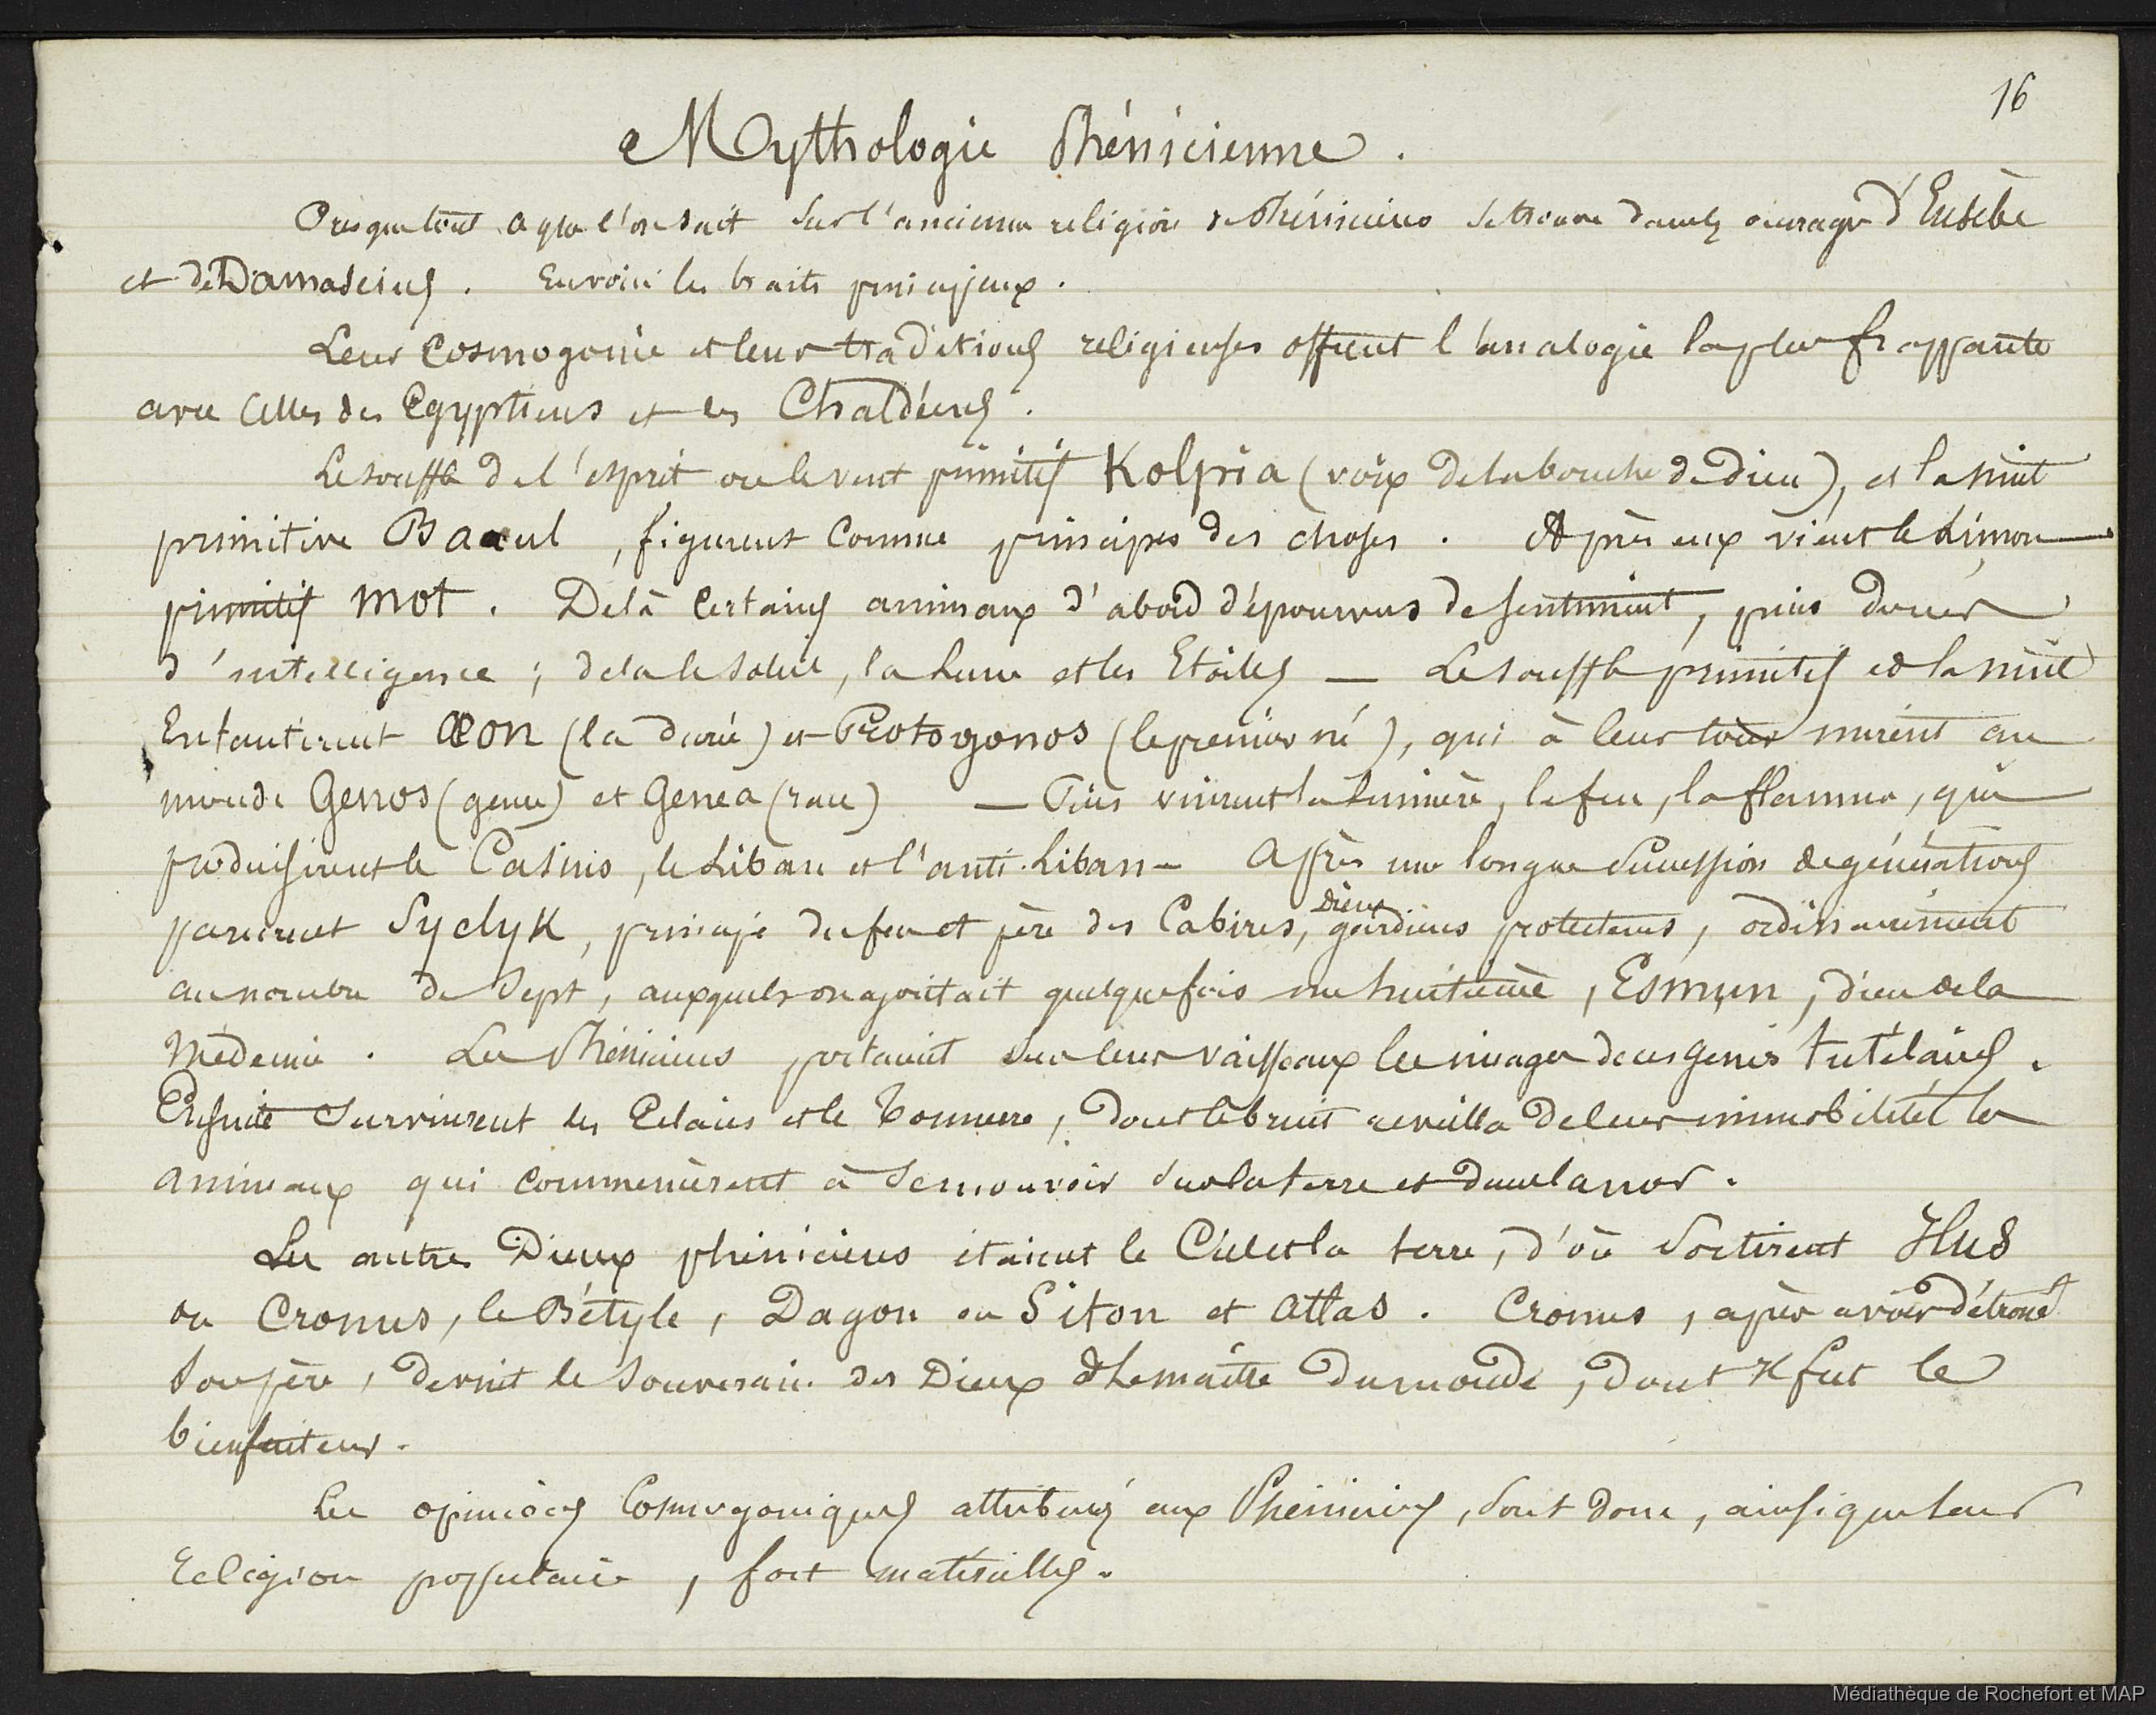 16
Mythologie Phénicienne.
Presque tout ce que l'on sait sur l'ancienne religion des Phéniciens se trouve dans les ouvrages d'Eusèbe
et de Damascius. En voici les traits principaux.
Leur Cosmogonie et leurs traditions religieuses offrent l'analogie la plus frappante
avec celles des Egyptiens et des Chaldéens.
Le souffle de l'esprit ou le vent primitif Kolpia (voix de la bouche de Dieu), et la nuit
primitive Baaul, figurent comme principes des choses. Après eux vient le Limon
primitif Mot. De là certains animaux d'abord dépourvus de sentiment, puis doués
d'intelligence ; de là le Soleil, la Lune et les Etoiles — Le souffle primitif et la nuit
Enfantèrent Æon (la durée) et Protogonos (le premier né), qui à leur tour mirent au
monde Genos (genre) et Genea (race) — Puis vinrent la lumière, le feu, la flamme, qui
produisirent le Casius, le Liban et l'anti-Liban — Après une longue succession de générations
parurent Sydyk, principe du feu et père des Cabires, Dieux gardiens protecteurs, ordinairement
au nombre de Sept, auxquels on ajoutait quelquefois un huitième, Esmun, dieu de la
Médecine. Les Phéniciens portaient sur leurs vaisseaux les images de ces génies tutélaires.
Ensuite survinrent les Eclairs et le Tonnerre, dont le bruit reveilla de leur immobilité les
animaux qui commencèrent à se mouvoir sur la terre et dans la mer.
Les autres Dieux phéniciens étaient le Ciel et la terre, d'où sortirent Ilus
ou Cronus, le Bétyle, Dagon ou Siton et Atlas. Cronus, après avoir détroné
son père, devint le souverain des Dieux et le maître du monde, dont il fut le
bienfaiteur.
Les opinions Cosmogoniques attribuées aux Phéniciens, sont donc, ainsi que leur
Religion populaire, fort matérielles.
Médiathèque de Rochefort et MAP